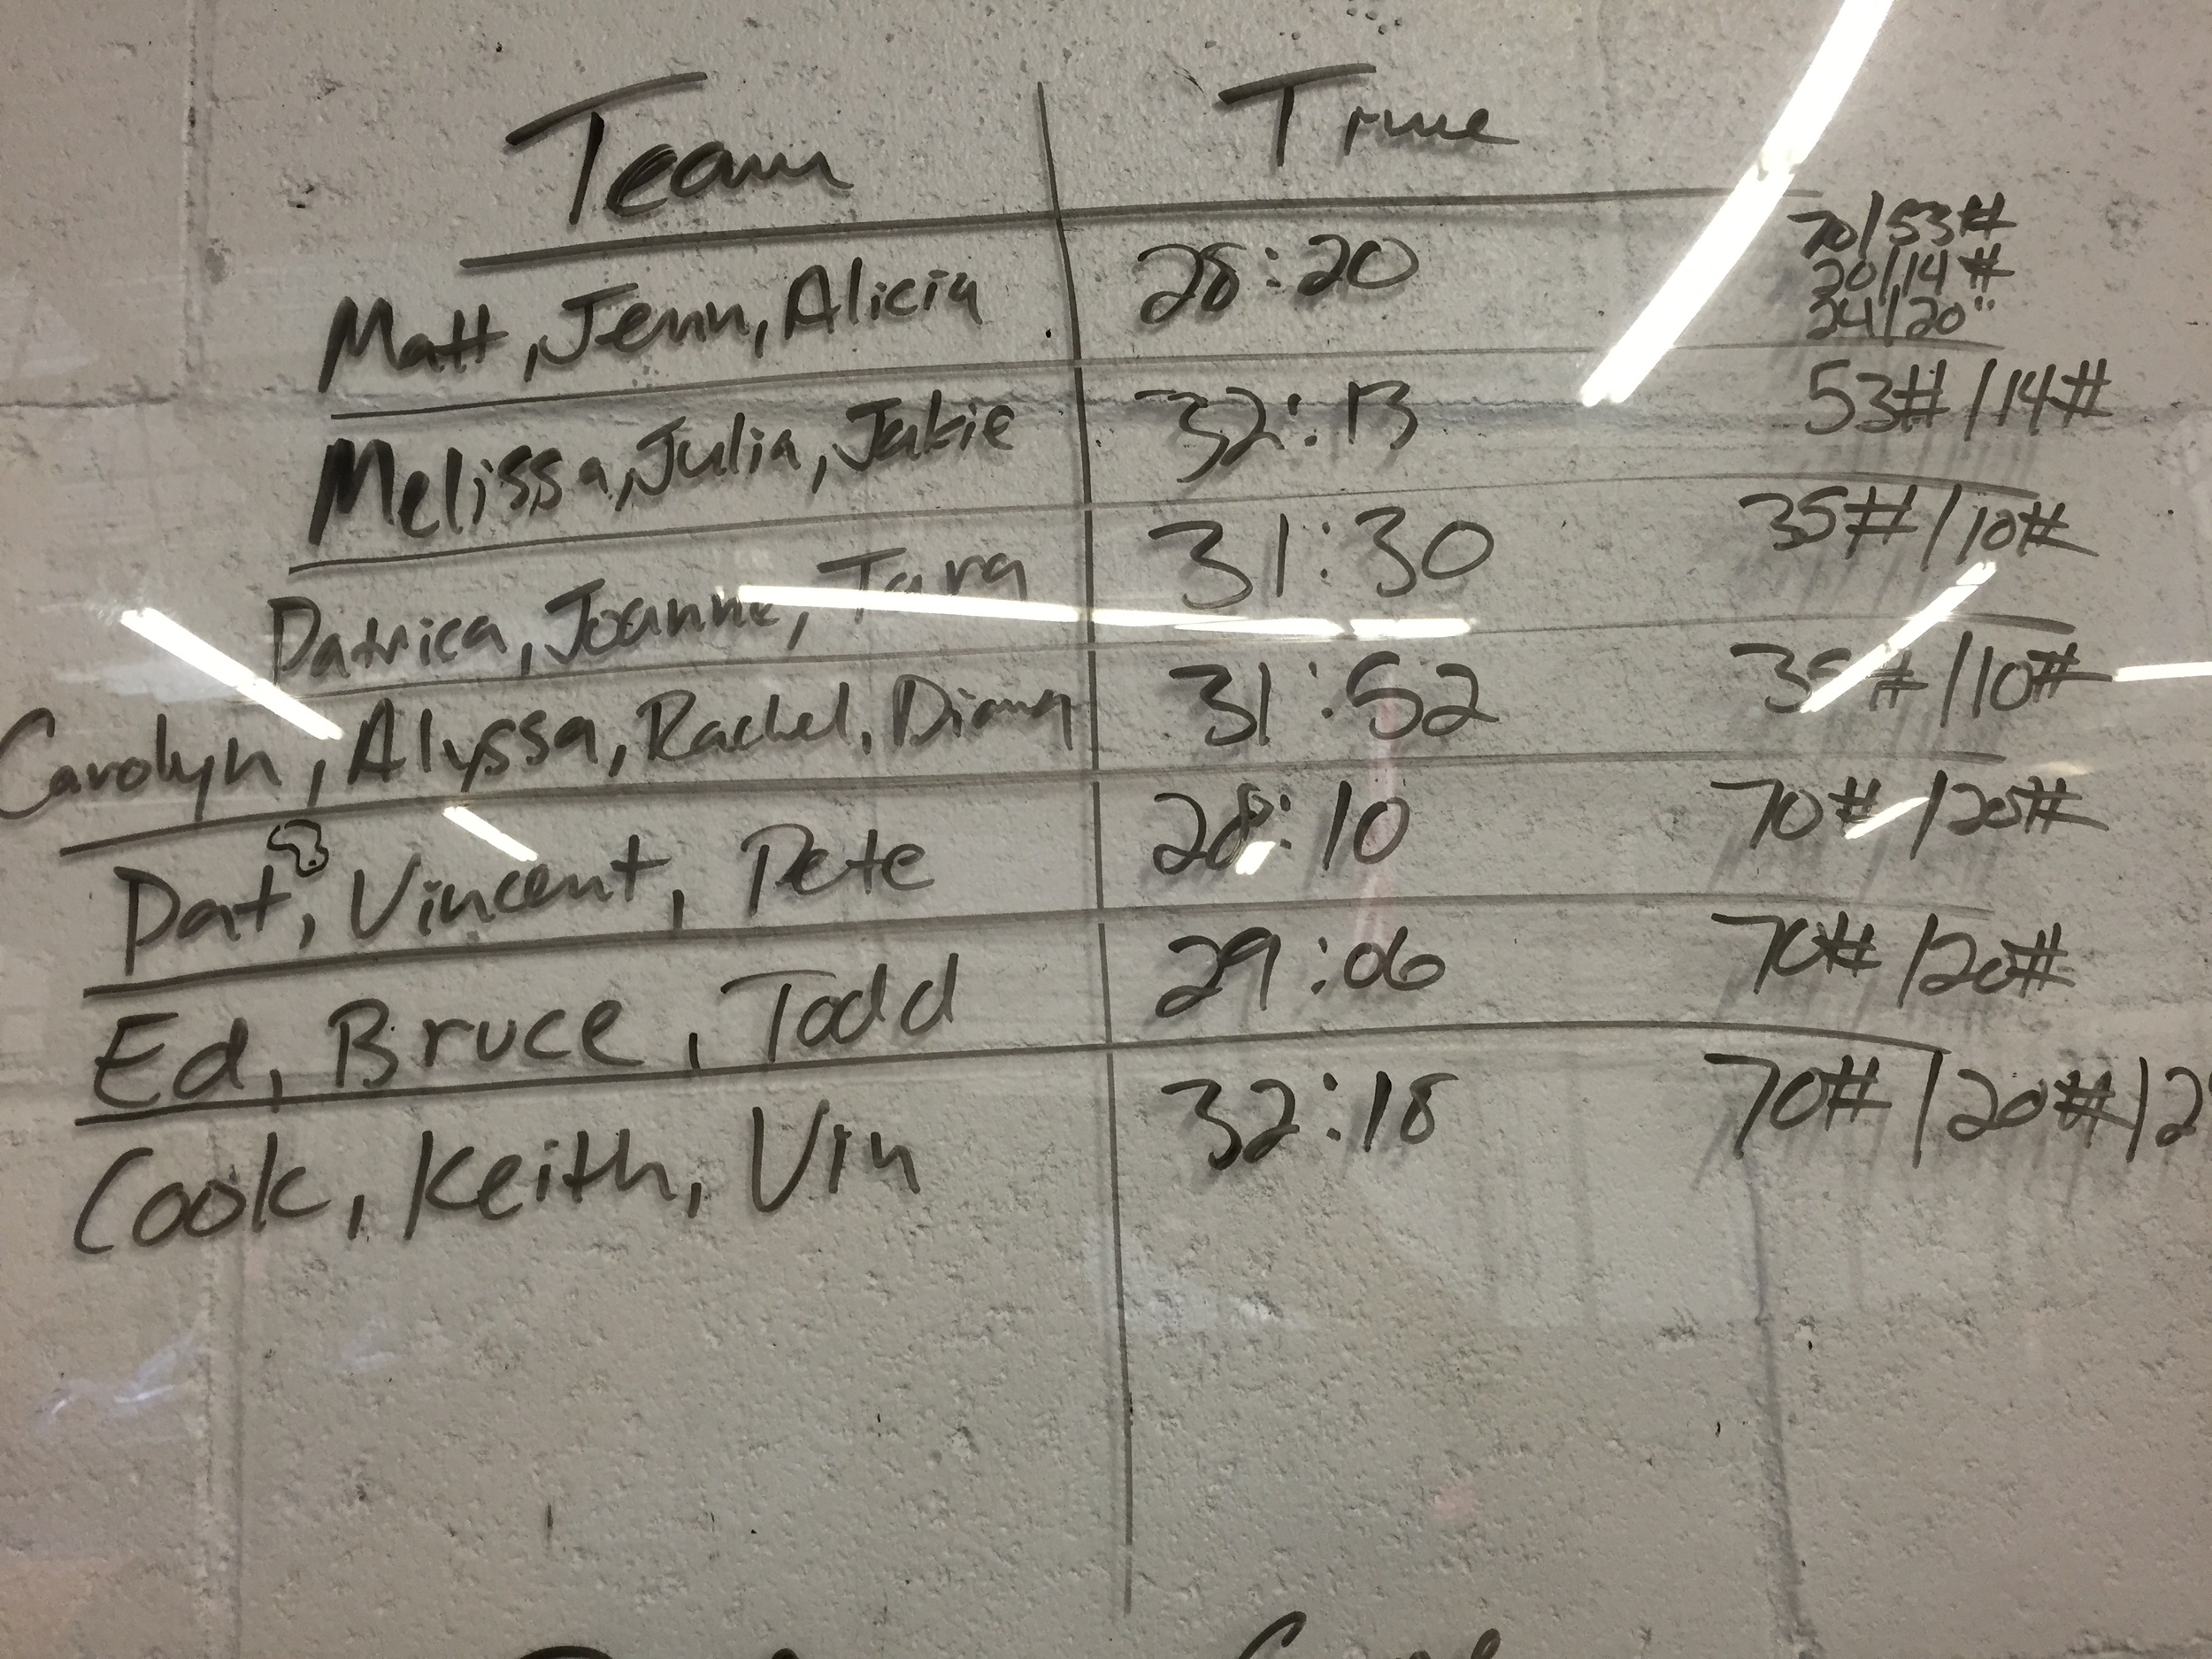 Team Time
Matt, Jenn, Alicia 28:20 70/53#
20/14#
24/20"
Melissa, Julia, Jakie 32:13 53#/14#
Patrica, Joanne, Tara 31:30 35#/10#
Carolyn, Alyssa, Rachel, Diana 31:52 35#/10#
Pat, Vincent, Pete 28:10 70#/20#
Ed, Bruce, Todd 29:06 70#/20#
Cook, Keith, Vin 32:18 70#/20#/2